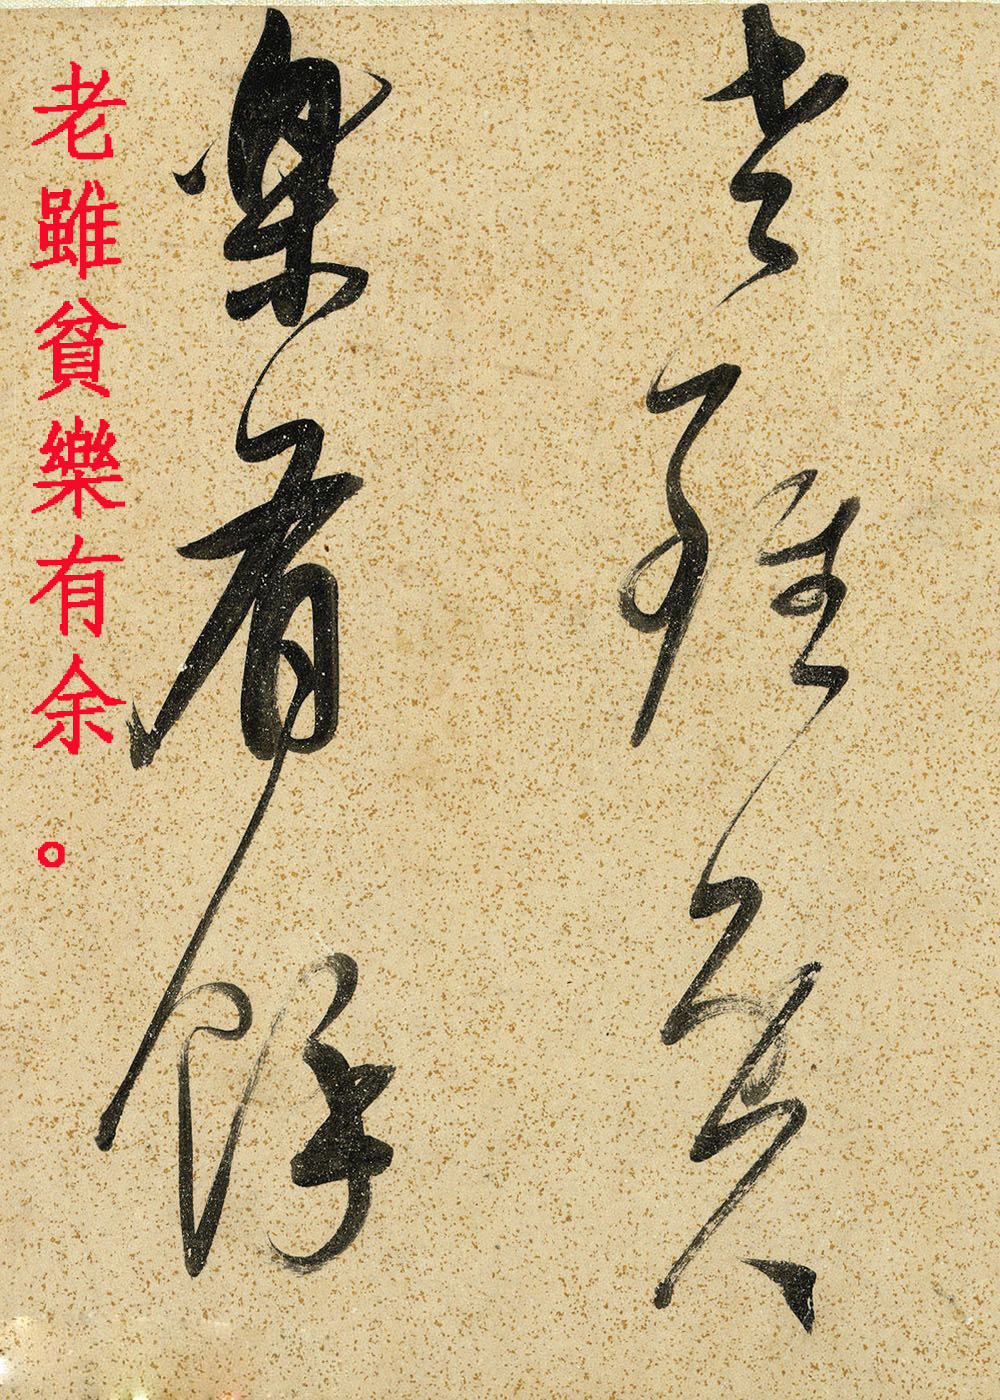 老雖貧
樂有餘
老雖貧樂有余。